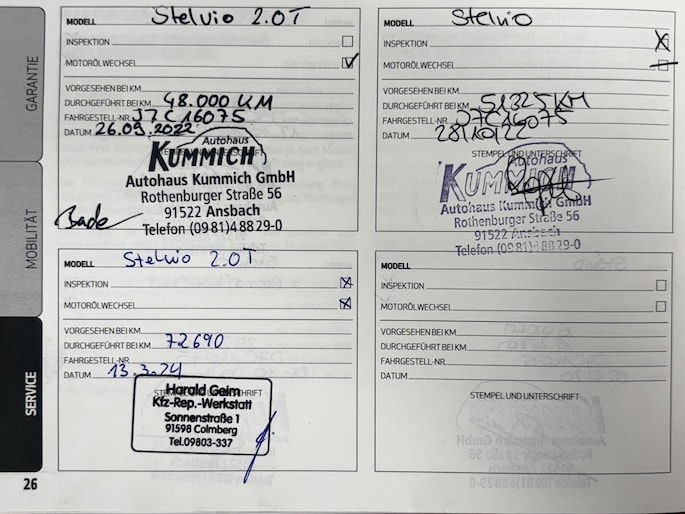 GARANTIE
MOBILITÄT
SERVICE
26
MODELL Stelvio 2.0T
INSPEKTION
MOTORÖLWECHSEL
VORGESEHEN BEI KM
DURCHGEFÜHRT BEI KM 48.000 KM
FAHRGESTELL-NR. J7C16075
DATUM 26.09.2022
Autohaus
KUMMICH
Autohaus Kummich GmbH
Rothenburger Straße 56
91522 Ansbach
Telefon (0981)48829-0
MODELL Stelvio
INSPEKTION X
MOTORÖLWECHSEL
VORGESEHEN BEI KM
DURCHGEFÜHRT BEI KM 51325KM
FAHRGESTELL-NR. J7C16075
DATUM 28/10/22
STEMPEL UND UNTERSCHRIFT
Autohaus
KUMMICH
Autohaus Kummich GmbH
Rothenburger Straße 56
91522 Ansbach
Telefon (0981)48829-0
MODELL Stelvio 2.0T
INSPEKTION X
MOTORÖLWECHSEL X
VORGESEHEN BEI KM
DURCHGEFÜHRT BEI KM 72690
FAHRGESTELL-NR.
DATUM 13.3.24
STEMPEL UND UNTERSCHRIFT
Harald Geim
Kfz-Rep.-Werkstatt
Sonnenstraße 1
91598 Colmberg
Tel.09803-337
MODELL
INSPEKTION
MOTORÖLWECHSEL
VORGESEHEN BEI KM
DURCHGEFÜHRT BEI KM
FAHRGESTELL-NR.
DATUM
STEMPEL UND UNTERSCHRIFT